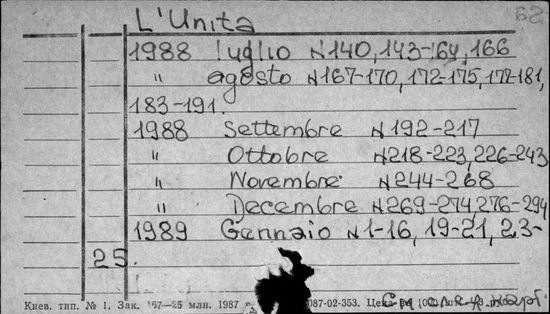 62
L'Unita
1988 luglio N140, 143-164, 166
" agosto N167-170, 172-175, 177-181,
183-191.
1988 Settembre N192-217
" Ottobre N218-223, 226-243
" Novembre N244-268
" Decembre N269-274, 276-294
1989 Gennaio N1-16, 19-21, 23-
25.
См. след. карт.
Киев. тип. № 1. Зак. 167—25 млн. 1987 087-02-353. Цена